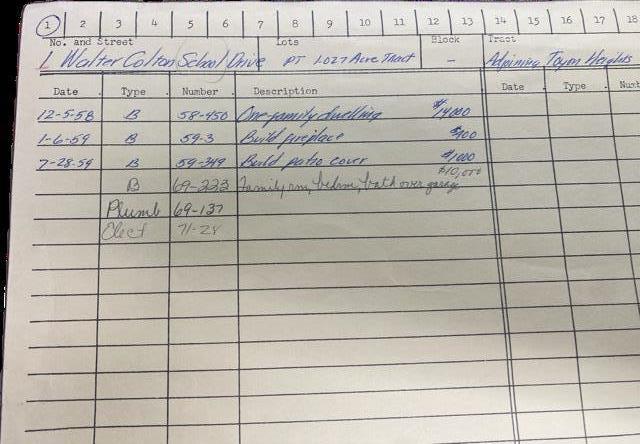 1 2 3 4 5 6 7 8 9 10 11 12 13 14 15 16 17 18
No. and Street Lots Block Tract
1 Walter Colton School Drive PT 1.027 Acre Tract - Adjoining Toyon Heights
Date Type Number Description Date Type
12-5-58 B 58-450 One-family dwelling $14000
1-6-59 B 59-3 Build fireplace $400
7-28-59 B 59-349 Build patio cover $1000
B 69-223 Family rm, bedrm, bath over garage $10,000
Plumb 69-137
Elect 71-28